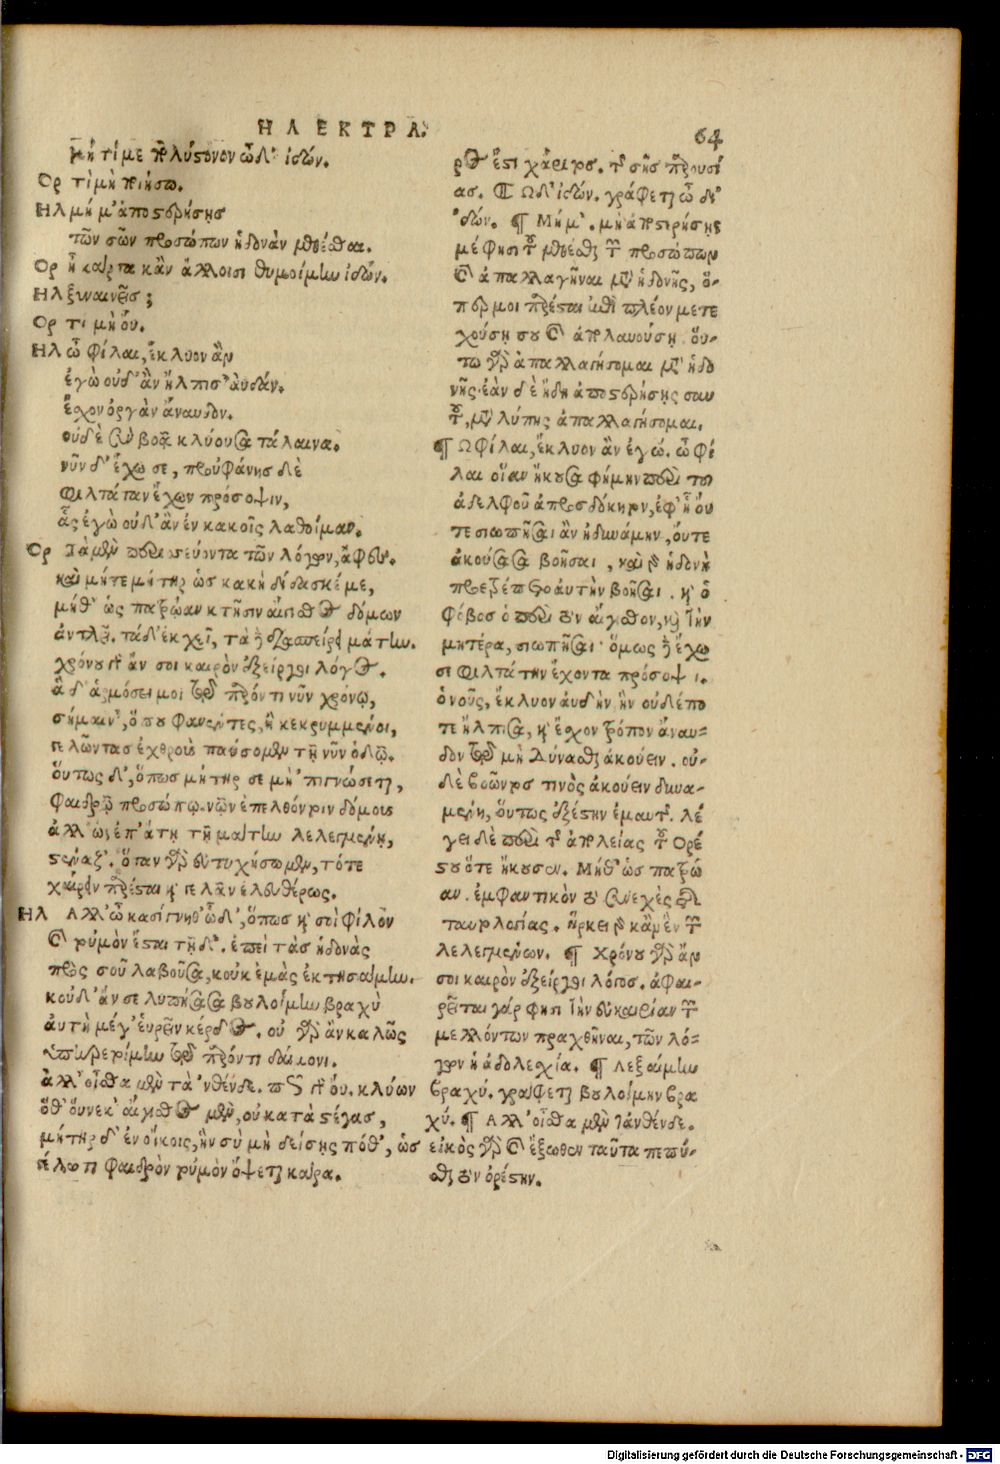 ΗΛΕΚΤΡΑ.
64
μή τί με πολύστονον ὧδ' ἰδών.
Ορ τί μὴ ποιήσω.
Ηλ μή μ' ἀποστερήσῃς
τῶν σῶν προσώπων ἡδονὰν μεθέσθαι.
Ορ ἦ κάρτα κἂν ἄλλοισι θυμοίμην ἰδών.
Ηλ ξυναινεῖς;
Ορ τί μὴ οὔ.
Ηλ ὦ φίλαι, ἔκλυον ἂν
ἐγὼ οὐδ' ἂν ἤλπισ' αὐδάν.
ἔχον ὀργὰν ἄναυδον.
οὐδὲ σὺν βοᾷ κλύουσα τάλαινα.
νῦν δ' ἔχω σε, προὐφάνης δὲ
φιλτάταν ἔχων πρόσοψιν,
ἇς ἐγὼ οὐδ' ἂν ἐν κακοῖς λαθοίμαν.
Ορ Τὰ μὲν περισσεύοντα τῶν λόγων, ἄφες.
καὶ μήτε μήτηρ ὡς κακὴ δίδασκέ με,
μήθ' ὡς πατρῴαν κτῆσιν αἴγισθος δόμων
ἀντλεῖ. τὰ δ' ἐκχεῖ, τὰ δὲ διασπείρει μάτην.
χρόνου γὰρ ἄν σοι καιρὸν ἐξείργοι λόγος.
ἃ δ' ἁρμόσει μοι τῷ παρόντι νῦν χρόνῳ,
σήμαιν', ὅπου φανέντες, ἢ κεκρυμμένοι,
γελῶντας ἐχθροὺς παύσομεν τῇ νῦν ὁδῷ.
οὕτως δ', ὅπως μήτηρ σε μὴ 'πιγνώσεται,
φαιδρῷ προσώπῳ νῶιν ἐπελθόντοιν δόμους
ἀλλ' ὡς ἐπ' ἄτῃ τῇ μάτην λελεγμένῃ,
στέναζ'. ὅταν γὰρ εὐτυχήσωμεν, τότε
χαίρειν παρέσται καὶ γελᾶν ἐλευθέρως.
Ηλ Αλλ' ὦ κασίγνηθ' ὧδ', ὅπως καὶ σοὶ φίλον
καὶ τοὐμὸν ἔσται τῇδ'. ἐπεὶ τὰς ἡδονὰς
πρὸς σοῦ λαβοῦσα, κοὐκ ἐμὰς ἐκτησάμην.
κοὐδ' ἄν σε λυπήσασα βουλοίμην βραχὺ
αὐτὴ μέγ' εὑρεῖν κέρδος. οὐ γὰρ ἂν καλῶς
ὑπηρετοίμην τῷ παρόντι δαίμονι.
ἀλλ' οἶσθα μὲν τὰ 'νθένδε. πῶς γὰρ οὔ. κλύων
ὅθ' οὕνεκ' αἴγισθος μὲν, οὐ κατὰ στέγας,
μήτηρ δ' ἐν οἴκοις, ἣν σὺ μὴ δείσῃς πόθ', ὡς
γέλωτι φαιδρὸν τοὐμὸν ὄψεται κάρα.
ρος ἔστι χάριτος. τῆς σῆς παρουσί
ας. ¶ Ωδ' ἰδών. γράφεται ὧ δι'
'δών. ¶ Μή μ'. μὴ ἀποστερήσῃς
μέ φησι τὸ μεθέσθαι τῶν προσώπων
καὶ ἀπαλλαγῆναι μεθ' ἡδονῆς, ὅ-
περ μοι παρέσται ἐπὶ πλέον μετε
χούσῃ σου καὶ ἀπολαυούσῃ. οὕ-
τω γὰρ ἀπαλλαγήσομαι μεθ' ἡδο
νῆς. ἐὰν δὲ ἤδη ἀποστερήσῃς σαυ
τοῦ, μετὰ λύπης ἀπαλλαγήσομαι.
¶ Ω φίλαι, ἔκλυον ἂν ἐγώ. ὦ φί
λαι οἵαν ἤκουσα φήμην περὶ τοῦ
ἀδελφοῦ ἀπροσδόκητον, ἐφ' ᾗ οὔ
τε σιωπῆσαι ἂν ἠδυνάμην, οὔτε
ἀκούσασα βοῆσαι, καὶ γὰρ ἡδονὴ
προετρέπετο αὐτὴν βοῆσαι. καὶ ὁ
φόβος ὁ περὶ τὸν αἴγισθον, καὶ τὴν
μητέρα, σιωπῆσαι· ὅμως δὲ ἔχω
σε φιλτάτην ἔχοντα πρόσοψιν.
ὁ νοῦς, ἔκλυον αὐδὴν ἣν οὐδέπο
τε ἤλπισα, καὶ ἔσχον τρόπον ἄναυ-
δον τῷ μὴ δύνασθαι ἀκούειν. οὐ-
δὲ βοῶντός τινος ἀκούειν δυνα-
μένη, οὕτως ἐξέστην ἐμαυτῆς. λέ
γει δὲ περὶ τῆς ἀπωλείας τοῦ Ορέ
στου ὅτε ἤκουσεν. Μήθ' ὡς πατρῴ
αν. ἐμφαντικὸν τὸ συνεχὲς τῆς
ταυτολογίας. ἤρκει γὰρ κἂν ἓν τῶν
λελεγμένων. ¶ Χρόνου γὰρ ἄν
σοι καιρὸν ἐξείργοι λόγος. ἀφαι-
ρεῖται γάρ φησι τὴν εὐκαιρίαν τῶν
μελλόντων πραχθῆναι, τῶν λό-
γων ἡ ἀδολεσχία. ¶ Λεξαίμην
βραχύ. γράφεται βουλοίμην βρα
χύ. ¶ Αλλ' οἶσθα μὲν τἀνθένδε.
εἰκὸς γὰρ καὶ ἔξωθεν ταῦτα πεπύ-
σθαι τὸν ὀρέστην.
Digitalisierung gefördert durch die Deutsche Forschungsgemeinschaft - DFG